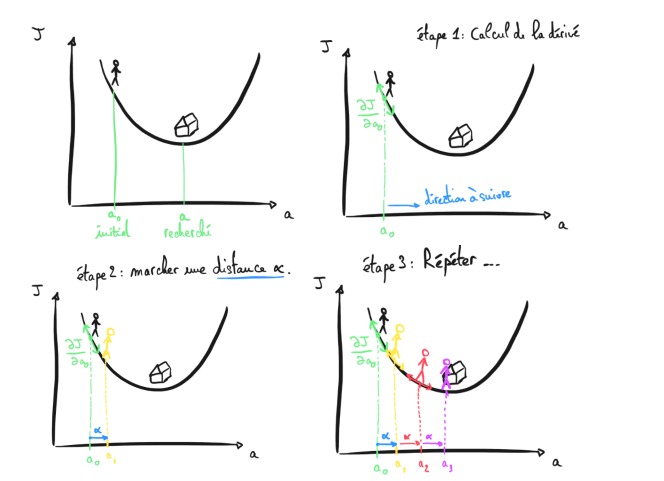 J
a₀
initial
a
recherché
a
étape 1: Calcul de la dérivé
J
∂J/∂a₀
direction à suivre
a₀
a
étape 2: marcher une distance α.
J
∂J/∂a₀
α
a₀ a₁
a
étape 3: Répéter ...
J
∂J/∂a₀
α α α
a₀ a₁ a₂ a₃
a